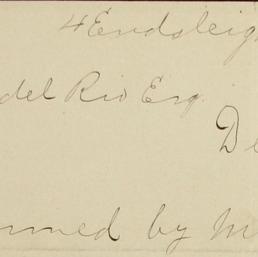 4 Endsleigh
del Rio Esq.
De
rmed by M